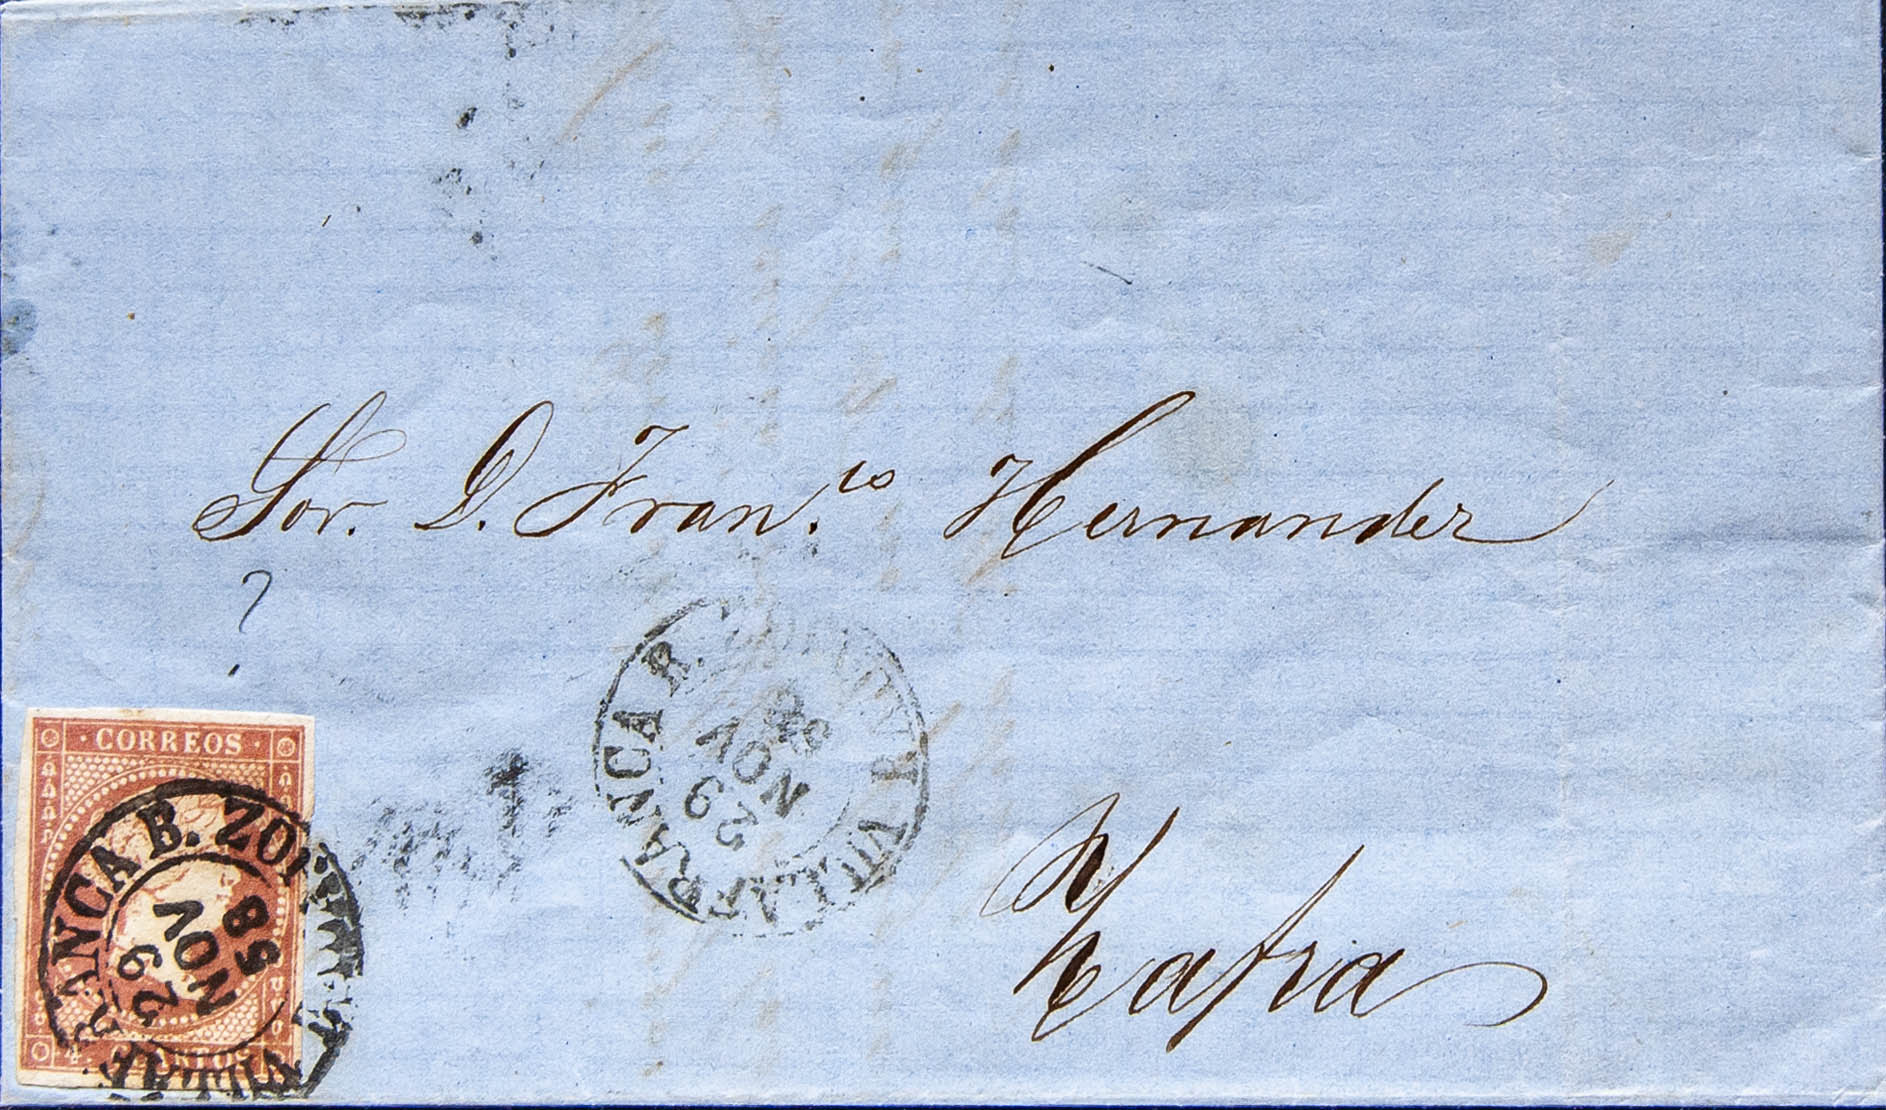 Sor. D. Fran.co Hernandez
?
VILLAFRANCA
29
NOV
58
Zafra
CORREOS
4. CUARTOS
ANCA B. ZO
29
NOV
58